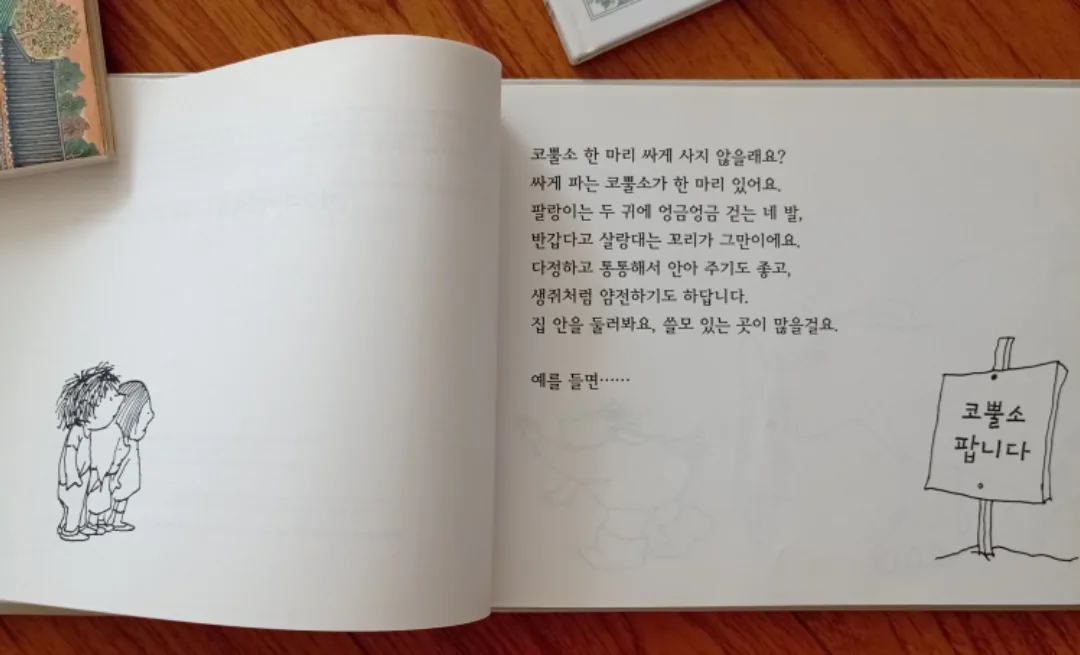 코뿔소 한 마리 싸게 사지 않을래요?
싸게 파는 코뿔소가 한 마리 있어요.
팔랑이는 두 귀에 엉금엉금 걷는 네 발,
반갑다고 살랑대는 꼬리가 그만이에요.
다정하고 통통해서 안아 주기도 좋고,
생쥐처럼 얌전하기도 하답니다.
집 안을 둘러봐요, 쓸모 있는 곳이 많을걸요.
예를 들면……
코뿔소
팝니다